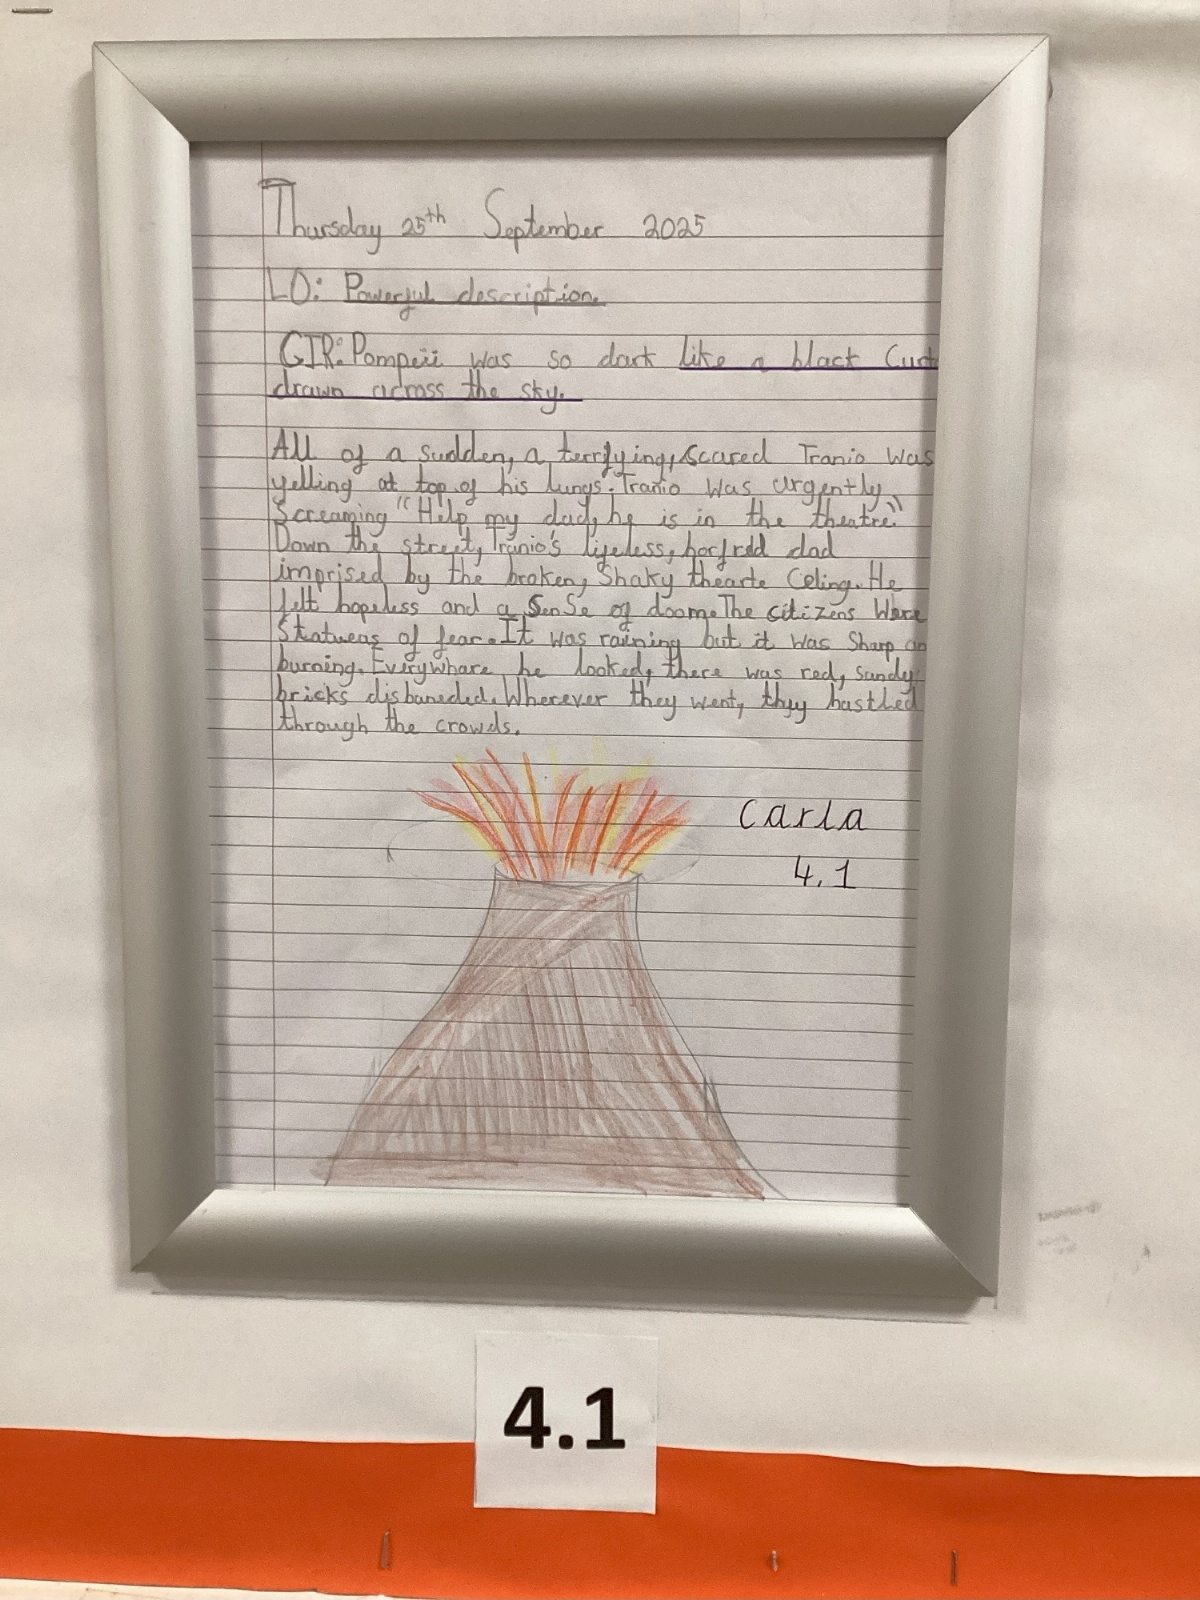 Thursday 25th September 2025
LO: Powerful description.
GIR: Pompeii was so dark like a black Curt
drawn across the sky.
All of a sudden, a terrfying, scared Tranio was
yelling at top of his lungs. Tranio was urgently
Screaming "Help my dad, he is in the theatre."
Down the street, Tranio's lifeless, dad
imprised by the broken, Shaky thearte Celing. He
felt hopeless and a SenSe of doom. The citizens Ware
Statueas of fear. It was raining but it was Sharp an
burning. Everywhare he looked, there was red, sandy
bricks disbaneded. Wherever they went, they hastled
through the crowds.
Carla
4.1
4.1